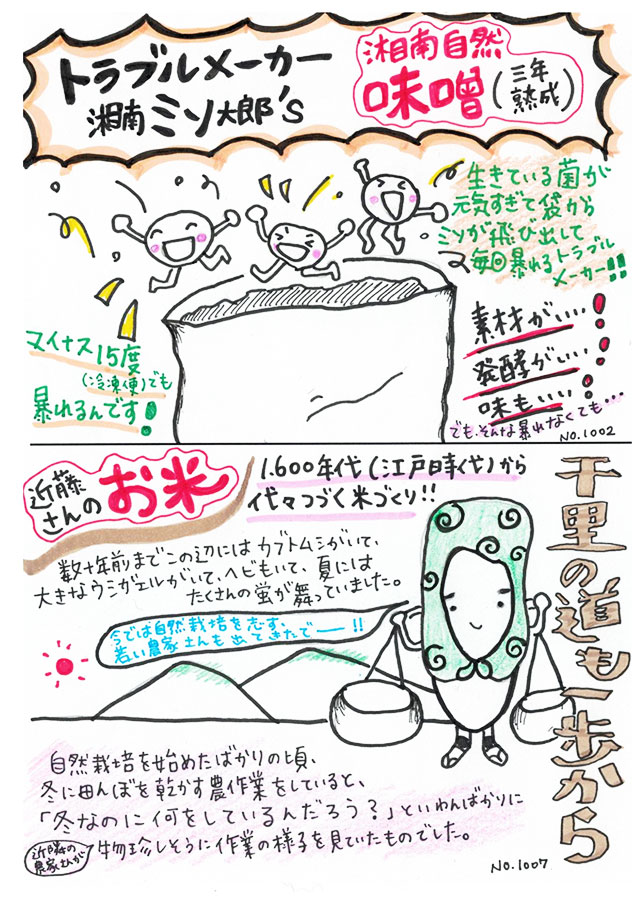 トラブルメーカー
湘南ミソ太郎's
湘南自然
味噌(三年熟成)
生きている菌が
元気すぎて袋から
ミソが飛び出して
毎回暴れるトラブル
メーカー!!
マイナス15度
(冷凍庫)でも
暴れるんです!
素材がい…!
発酵がい…!
味も…!
でも、そんな暴れなくても…
NO.1002
近藤
さんの
お米
1.600年代(江戸時代)から
代々つづく米づくり!!
千里の道も一歩から
数十年前までこの辺にはカブトムシがいて、
大きなウシガエルがいて、ヘビもいて、夏には
たくさんの蛍が舞っていました。
今では自然栽培を志す、
若い農家さんも出てきたで——!!
自然栽培を始めたばかりの頃、
冬に田んぼを乾かす農作業をしていると、
「冬なのに何をしているんだろう?」といわんばかりに
近隣の
農家さんが
物珍しそうに作業の様子を見ていたものでした。
NO.1007